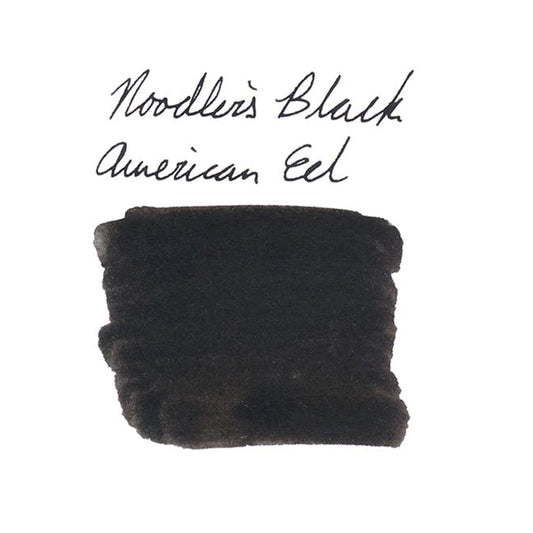 Noodler's Black
American Eel